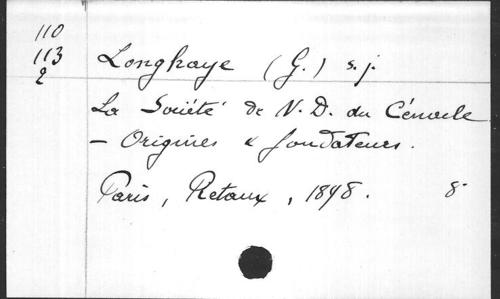 110
113
2
Longhaye (G.) s.j.
La Société de N.D. du Cénacle
– Origines & fondateurs.
Paris, Retaux, 1898. 8°